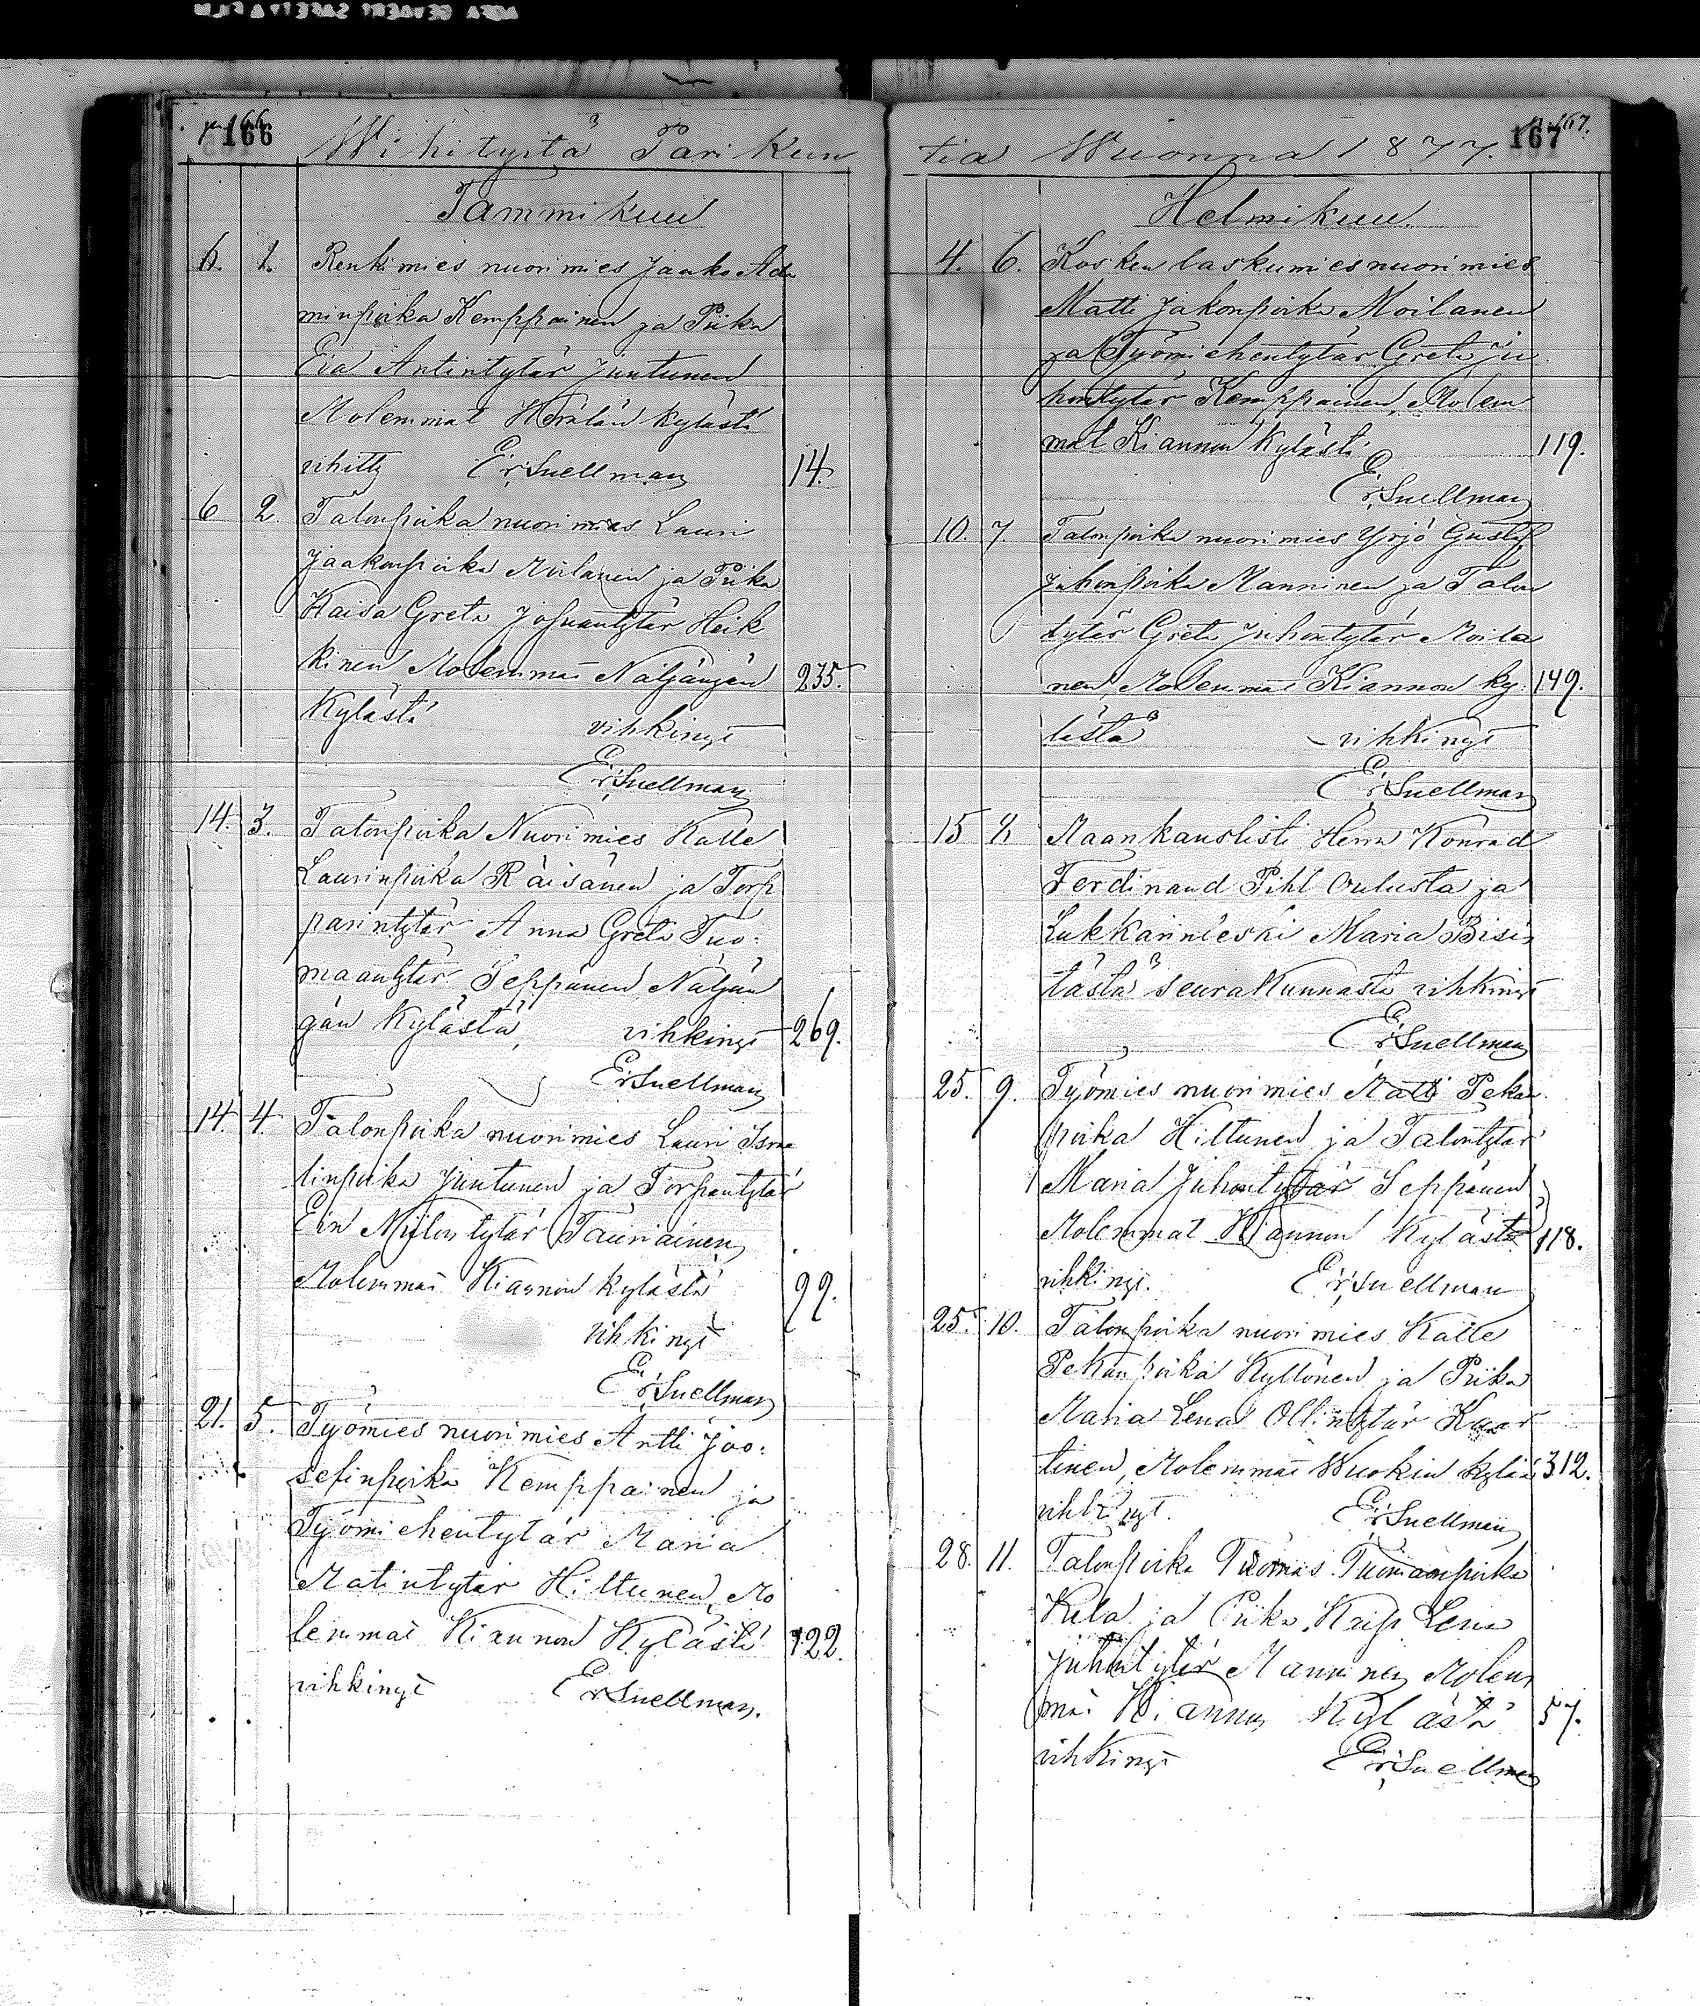 166
Wihityitä Pariskun
Tammikuu
6. 1. Renkimies nuorimies Jaako Ada
minpoika Kemppainen ja Piika
Eva Antintytär Juntunen
Molemmat kylästä
vihitty Er. Snellman 14.
6 2. Talonpoika nuorimies Lauri
Jaakonpoika Moilanen ja Piika
Kaisa Greta Josuantytär Heik
kinen Molemmat Näljängän 235.
Kylästä vihkinyt
Er. Snellman
14. 3. Talonpoika Nuorimies Kalle
Laurinpoika Räisänen ja Torp
parintytär Anna Greta Tuo-
maantytär Seppänen Näljän
gän Kylästä, vihkinyt 269.
Er Snellman
14. 4. Talonpoika nuorimies Lauri Isra
linpoika Juntunen ja Torpantytär
Niilontytär Tauriainen
Molemmat Kiannon kylästä 99.
vihkinyt
Er. Snellman
21. 5. Työmies nuorimies Antti Joo-
sefinpoika Kemppainen ja
Työmiehentytär Maria
Matintytär Hiltunen, Mo
lemmat Kiannon Kylästä 122.
vihkinyt Er Snellman.
167
tia Wuonna 1877.
Helmikuu.
4. 6. Kosken laskumies nuorimies
Matti Jakonpoika Moilanen
ja Työmiehentytär Greta Ju
hontytär Kemppainen, Molem
mat Kiannon Kylästä 119.
Er. Snellman
10. 7 Talonpoika nuorimies Yrjö Gustaf
Juhonpoika Manninen ja Talon
tytär Greta Juhontytär Moila
nen, Molemmat Kiannon ky- 149.
lästä vihkinyt
Er. Snellman
15 8 Maankanslisti Herra Konrad
Ferdinand Pihl Oulusta ja
Lukkarinleski Maria Bisi
tästä seurakunnasta vihkinyt
Er. Snellman
25. 9. Työmies nuorimies Matti Pekan
poika Hiltunen ja Talontytär
Maria Juhontytär Seppänen
Molemmat Kiannon Kylästä 118.
vihkinyt. Er. Snellman
25. 10. Talonpoika nuorimies Kalle
Pekanpoika Kyllönen ja Piika
Maria Lena Ollintytär Kaar
tinen, Molemmat Wuokin kyläs 312.
vihkinyt. Er. Snellman
28. 11. Talonpoika Tuomas Tuomaanpoika
Kela ja Piika Lena
Juhontytär Manninen Molem
mat Kiannon Kylästä 57.
vihkinyt Er. Snellman